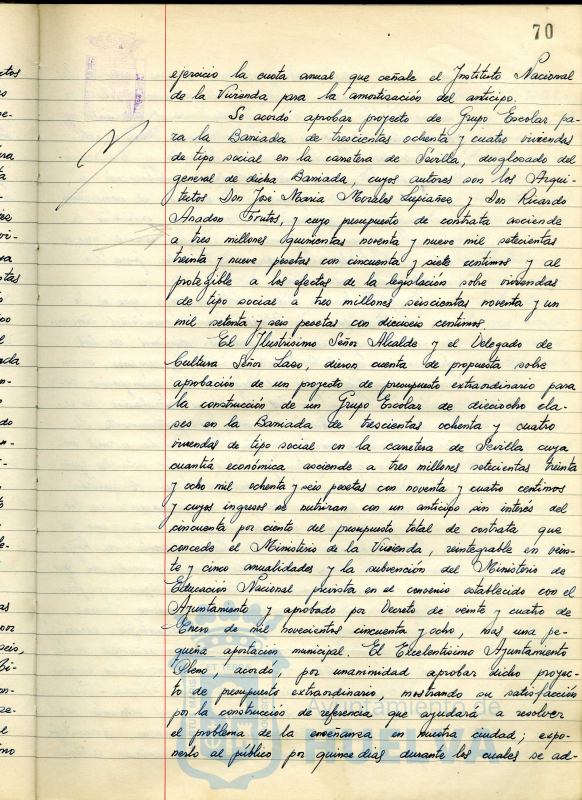 70
ejercicio la cuota anual que señale el Instituto Nacional
de la Vivienda para la amortización del anticipo.
Se acordó aprobar proyecto de Grupo Escolar pa-
ra la Barriada de trescientas ochenta y cuatro viviendas
de tipo social en la carretera de Sevilla, desglosado del
general de dicha Barriada, cuyos autores son los Arqui-
tectos Don Jose Maria Morales Lupiañez y Don Ricardo
Anadon Frutos, y cuyo presupuesto de contrata asciende
a tres millones quinientas noventa y nueve mil setecientas
treinta y nueve pesetas con cincuenta y siete centimos y al
protegible a los efectos de la legislación sobre viviendas
de tipo social a tres millones seiscientas noventa y un
mil setenta y seis pesetas con dieciseis centimos.
El Ilustrisimo Señor Alcalde y el Delegado de
Cultura Señor Laso, dieron cuenta de propuesta sobre
aprobación de un proyecto de presupuesto extraordinario para
la construcción de un Grupo Escolar de dieciocho cla-
ses en la Barriada de trescientas ochenta y cuatro
viviendas de tipo social en la carretera de Sevilla cuya
cuantiá económica asciende a tres millones setecientas treinta
y ocho mil ochenta y seis pesetas con noventa y cuatro centimos
y cuyos ingresos se nutriran con un anticipo sin interés del
cincuenta por ciento del presupuesto total de contrata que
concede el Ministerio de la Vivienda, reintegrable en vein-
te y cinco anualidades y la subvención del Ministerio de
Educación Nacional prevista en el convenio establecido con el
Ayuntamiento y aprobado por Decreto de veinte y cuatro de
Enero de mil novecientos cincuenta y ocho, mas una pe-
queña aportación municipal. El Excelentisimo Ayuntamiento
Pleno, acordó, por unanimidad aprobar dicho proyec-
to de presupuesto extraordinario, mostrando su satisfacción
por la construcción de referencia que ayudará a resolver
el problema de la enseñanza en nuestra ciudad; expo-
nerlo al público por quince dias durante los cuales se ad-
Ayuntamiento de
HUELVA